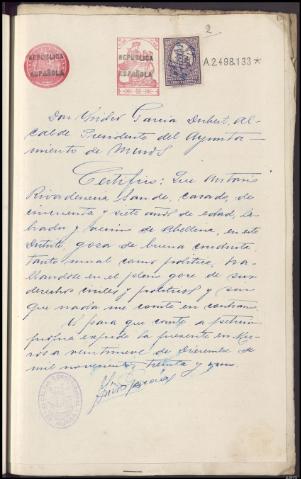 2
REPUBLICA
ESPAÑOLA
REPUBLICA
ESPAÑOLA
A.2498.133*
Don Isidro Garcia Dubert, Al-
calde Presidente del Ayunta-
miento de Muros
Certifico: Que Antonio
Rivadeneira Sande, casado, de
cincuenta y siete años de edad, la-
brador y vecino de Abelleira, en este
Distrito, goza de buena conducta
tanto moral como politica, ha-
llandose en el pleno goce de sus
derechos civiles y politicos y sin
que nada me conste en contrario.
Y para que conste a peticion
propia expido la presente en Mu-
ros a veintinueve de Diciembre de
mil novecientos treinta y uno